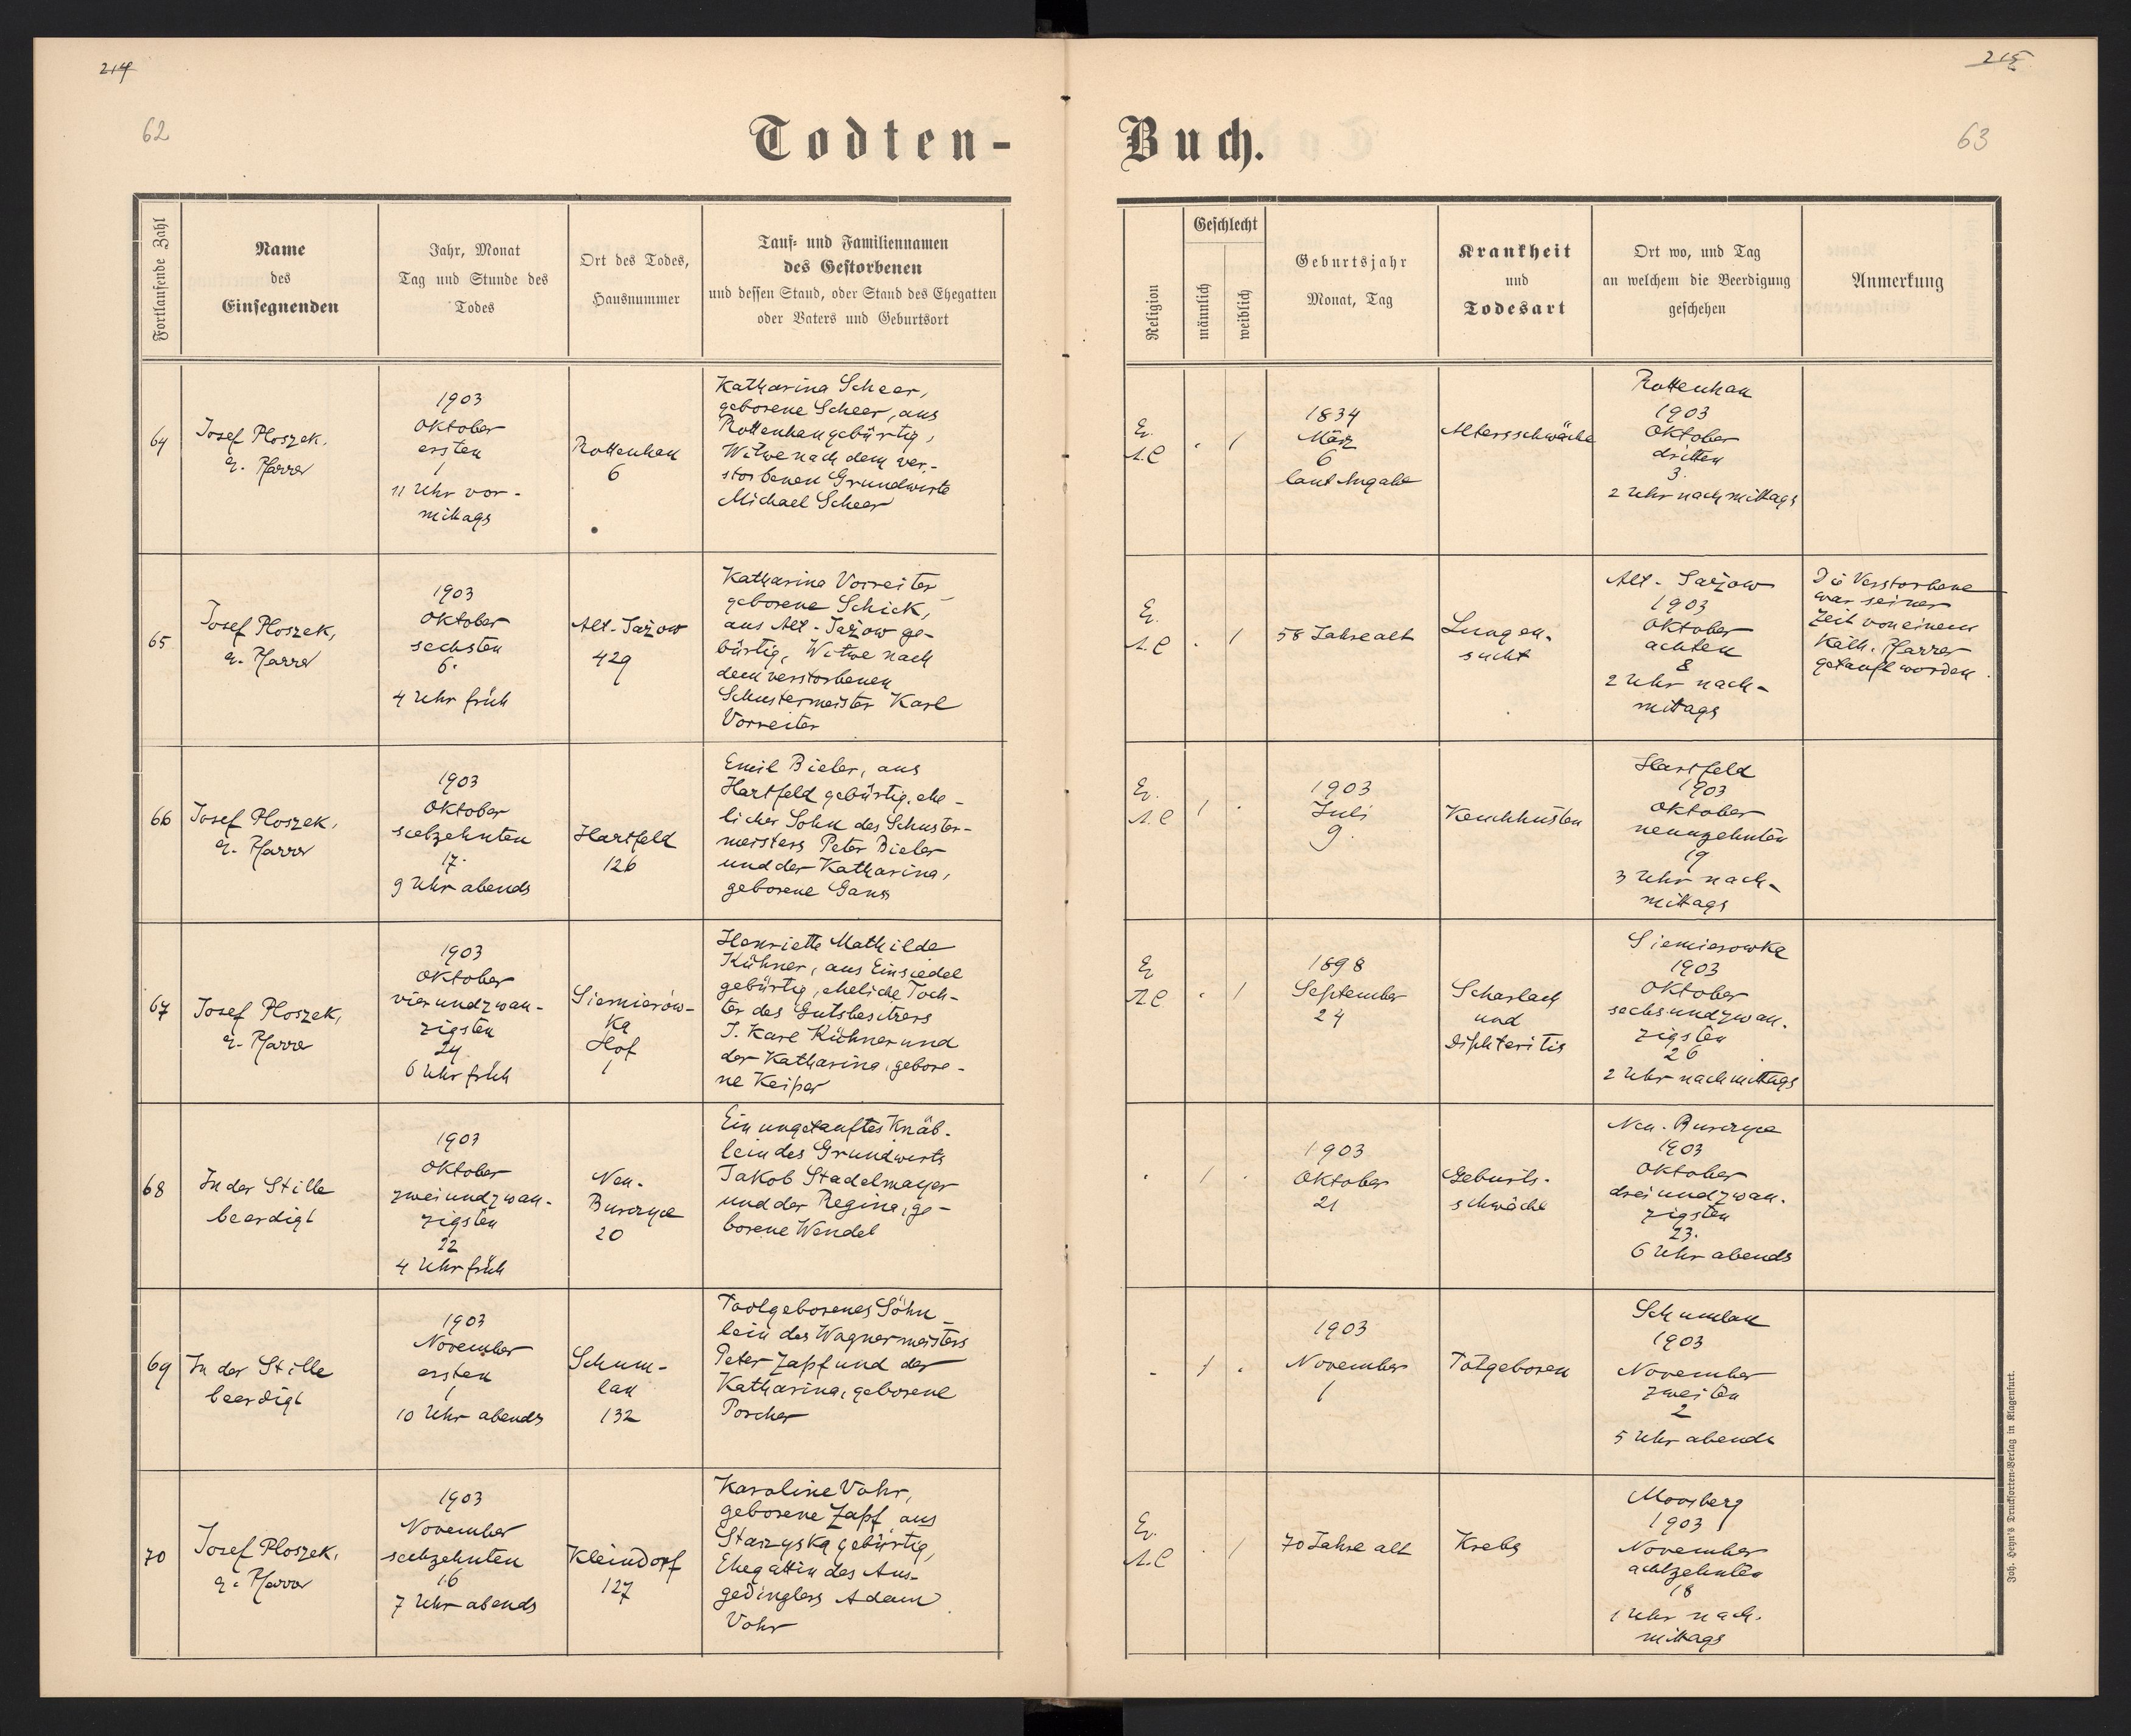 214
215
62
63
Todten-
Buch.
Fortlaufende Zahl
Name
des
Einsegnenden
Jahr, Monat
Tag und Stunde des
Todes
Ort des Todes,
Hausnummer
Tauf- und Familiennamen
des Gestorbenen
und dessen Stand, oder Stand des Ehegatten
oder Vaters und Geburtsort
Religion
Geschlecht
männlich
weiblich
Geburtsjahr
Monat, Tag
Krankheit
und
Todesart
Ort wo, und Tag
an welchem die Beerdigung
geschehen
Anmerkung
64
Josef Ploszek,
ev. Pfarrer
1903
Oktober
ersten
1
11 Uhr vor-
mittags
Rottenhan
6
Katharina Scheer,
geborene Scheer, aus
Rottenhan gebürtig,
Witwe nach dem ver-
storbenen Grundwirte
Michael Scheer
Ev.
A.C
1
1834
März
6
laut Angabe
Altersschwäche
Rottenhan
1903
Oktober
dritten
3.
2 Uhr nachmittags
65
Josef Ploszek,
ev. Pfarrer
1903
Oktober
sechsten
6.
4 Uhr früh
Alt-Jażow
429
Katharina Vorreiter
geborene Schick,
aus Alt-Jażow ge-
bürtig, Witwe nach
dem verstorbenen
Schustermeister Karl
Vorreiter
Ev.
A.C
1
58 Jahre alt
Lungen-
sucht
Alt-Jażow
1903
Oktober
achten
8
2 Uhr nach-
mittags
Die Verstorbene
war seiner
Zeit von einem
Kath. Pfarrer
getauft worden.
66
Josef Ploszek,
ev. Pfarrer
1903
Oktober
siebzehnten
17.
9 Uhr abends
Hartfeld
126
Emil Bieler, aus
Hartfeld gebürtig, ehe-
licher Sohn des Schuster-
meisters Peter Bieler
und der Katharina,
geborene Gans
Ev.
A.C
1
1903
Juli
9.
Keuchhusten
Hartfeld
1903
Oktober
neunzehnten
19
3 Uhr nach-
mittags
67
Josef Ploszek,
ev. Pfarrer
1903
Oktober
vierundzwan-
zigsten
24.
6 Uhr früh
Siemierów-
ka
Hof
1
Henriette Mathilde
Kühner, aus Einsiedel
gebürtig, eheliche Toch-
ter des Gutsbesitzers
J. Karl Kühner und
der Katharina, gebore-
ne Keiper
Ev
A.C
1
1898
September
24
Scharlach
und
Diphteritis
Siemierowka
1903
Oktober
sechsundzwan-
zigsten
26
2 Uhr nachmittags
68
In der Stille
beerdigt
1903
Oktober
zweiundzwan-
zigsten
22
4 Uhr früh
Neu-
Bunczye
20
Ein ungetauftes Knäb-
lein des Grundwirts
Jakob Stadelmayer
und der Regina, ge-
borene Wendel
1
1903
Oktober
21
Geburts-
schwäche
1903
Oktober
dreiundzwan-
zigsten
23.
6 Uhr abends
69
In der Stille
beerdigt
1903
November
ersten
1
10 Uhr abends
Schum-
lau
132
Totgeborenes Söhn-
lein des Wagnermeisters
Peter Zapf und der
Katharina, geborene
Porcher
1
1903
November
1
Totgeboren
Schumlau
1903
November
zweiten
2
5 Uhr abends
70
Josef Ploszek,
ev. Pfarrer
1903
November
sechzehnten
16
7 Uhr abends
Kleindorf
127
Karoline Vohr,
geborene Zapf aus
Starzyska gebürtig,
Ehegattin des Aus-
gedinglers Adam
Vohr
Ev.
A.C
1
70 Jahre alt
Krebs
Moosberg
1903
November
achtzehnten
18
1 Uhr nach-
mittags
Joh. Heyn's Drucksorten-Verlag in Klagenfurt.